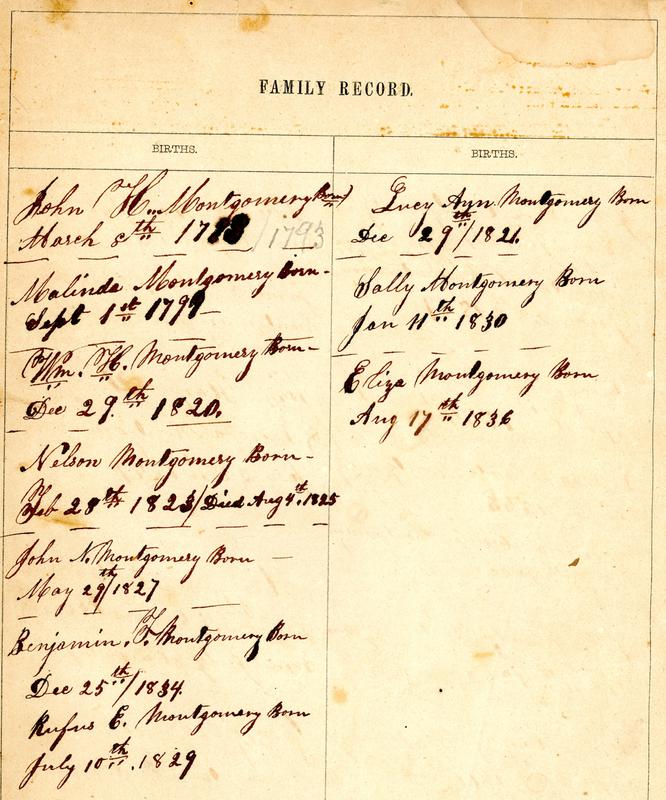 FAMILY RECORD.
BIRTHS.
John H. Montgomery Born
March 8th 1793 / 1793
Malinda Montgomery Born-
Sept 1st 1799-
Wm. H. Montgomery Born-
Dec 29.th 1820.
Nelson Montgomery Born-
Feb 28th 1823/Died Aug 4th. 1825
John N. Montgomery Born
May 29th/1827
Benjamin. F. Montgomery Born
Dec 25th/1834.
Rufus E. Montgomery Born
July 10th. 1829
BIRTHS.
Lucy Ann Montgomery Born
Dec 29th/1821.
Sally Montgomery Born
Jan 11th 1830
Eliza Montgomery Born
Aug 17th 1836